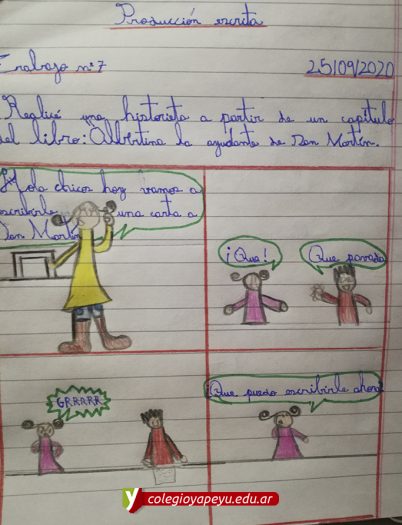 Producción escrita
Trabajo n° 7
25/09/2020
Realicé una historieta a partir de un capítulo
del libro: Albertina la ayudante de Don Martín.
Hola chicos hoy vamos a
escribirle una carta a
Don Martín
¡Que!
Que parrada
GRRRRR
¡Que puedo escribirle ahora!
colegioyapeyu.edu.ar